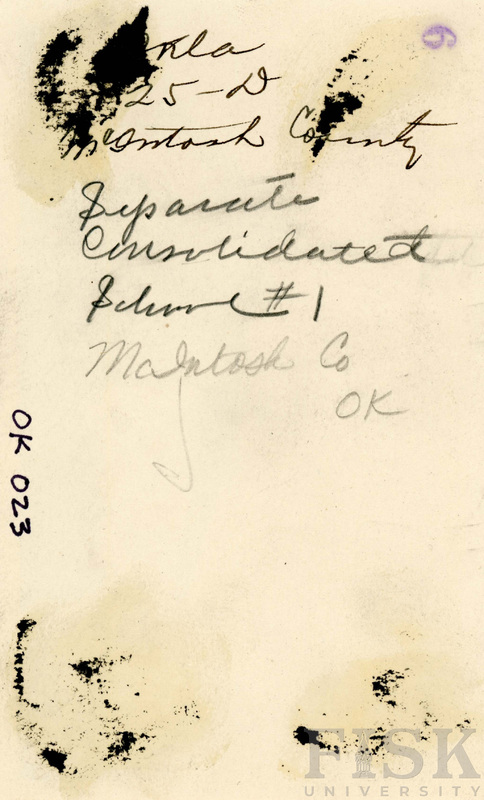 Okla
25-D
McIntosh County
Separate
Consolidated
School #1
McIntosh Co
OK
OK 023
6
FISK
UNIVERSITY